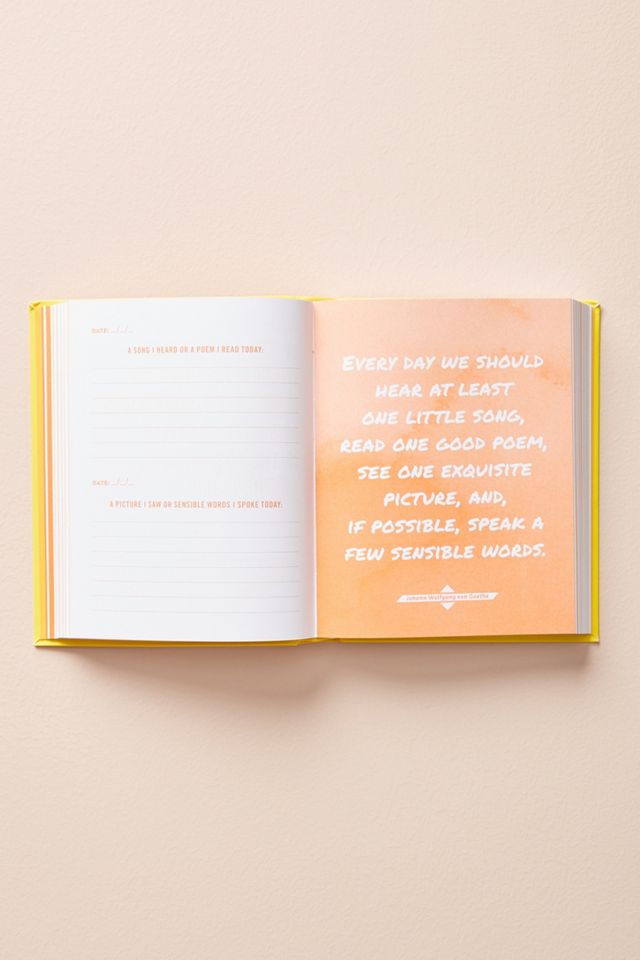 DATE: __/__/__
A SONG I HEARD OR A POEM I READ TODAY:
DATE: __/__/__
A PICTURE I SAW OR SENSIBLE WORDS I SPOKE TODAY:
EVERY DAY WE SHOULD
HEAR AT LEAST
ONE LITTLE SONG,
READ ONE GOOD POEM,
SEE ONE EXQUISITE
PICTURE, AND,
IF POSSIBLE, SPEAK A
FEW SENSIBLE WORDS.
Johann Wolfgang von Goethe